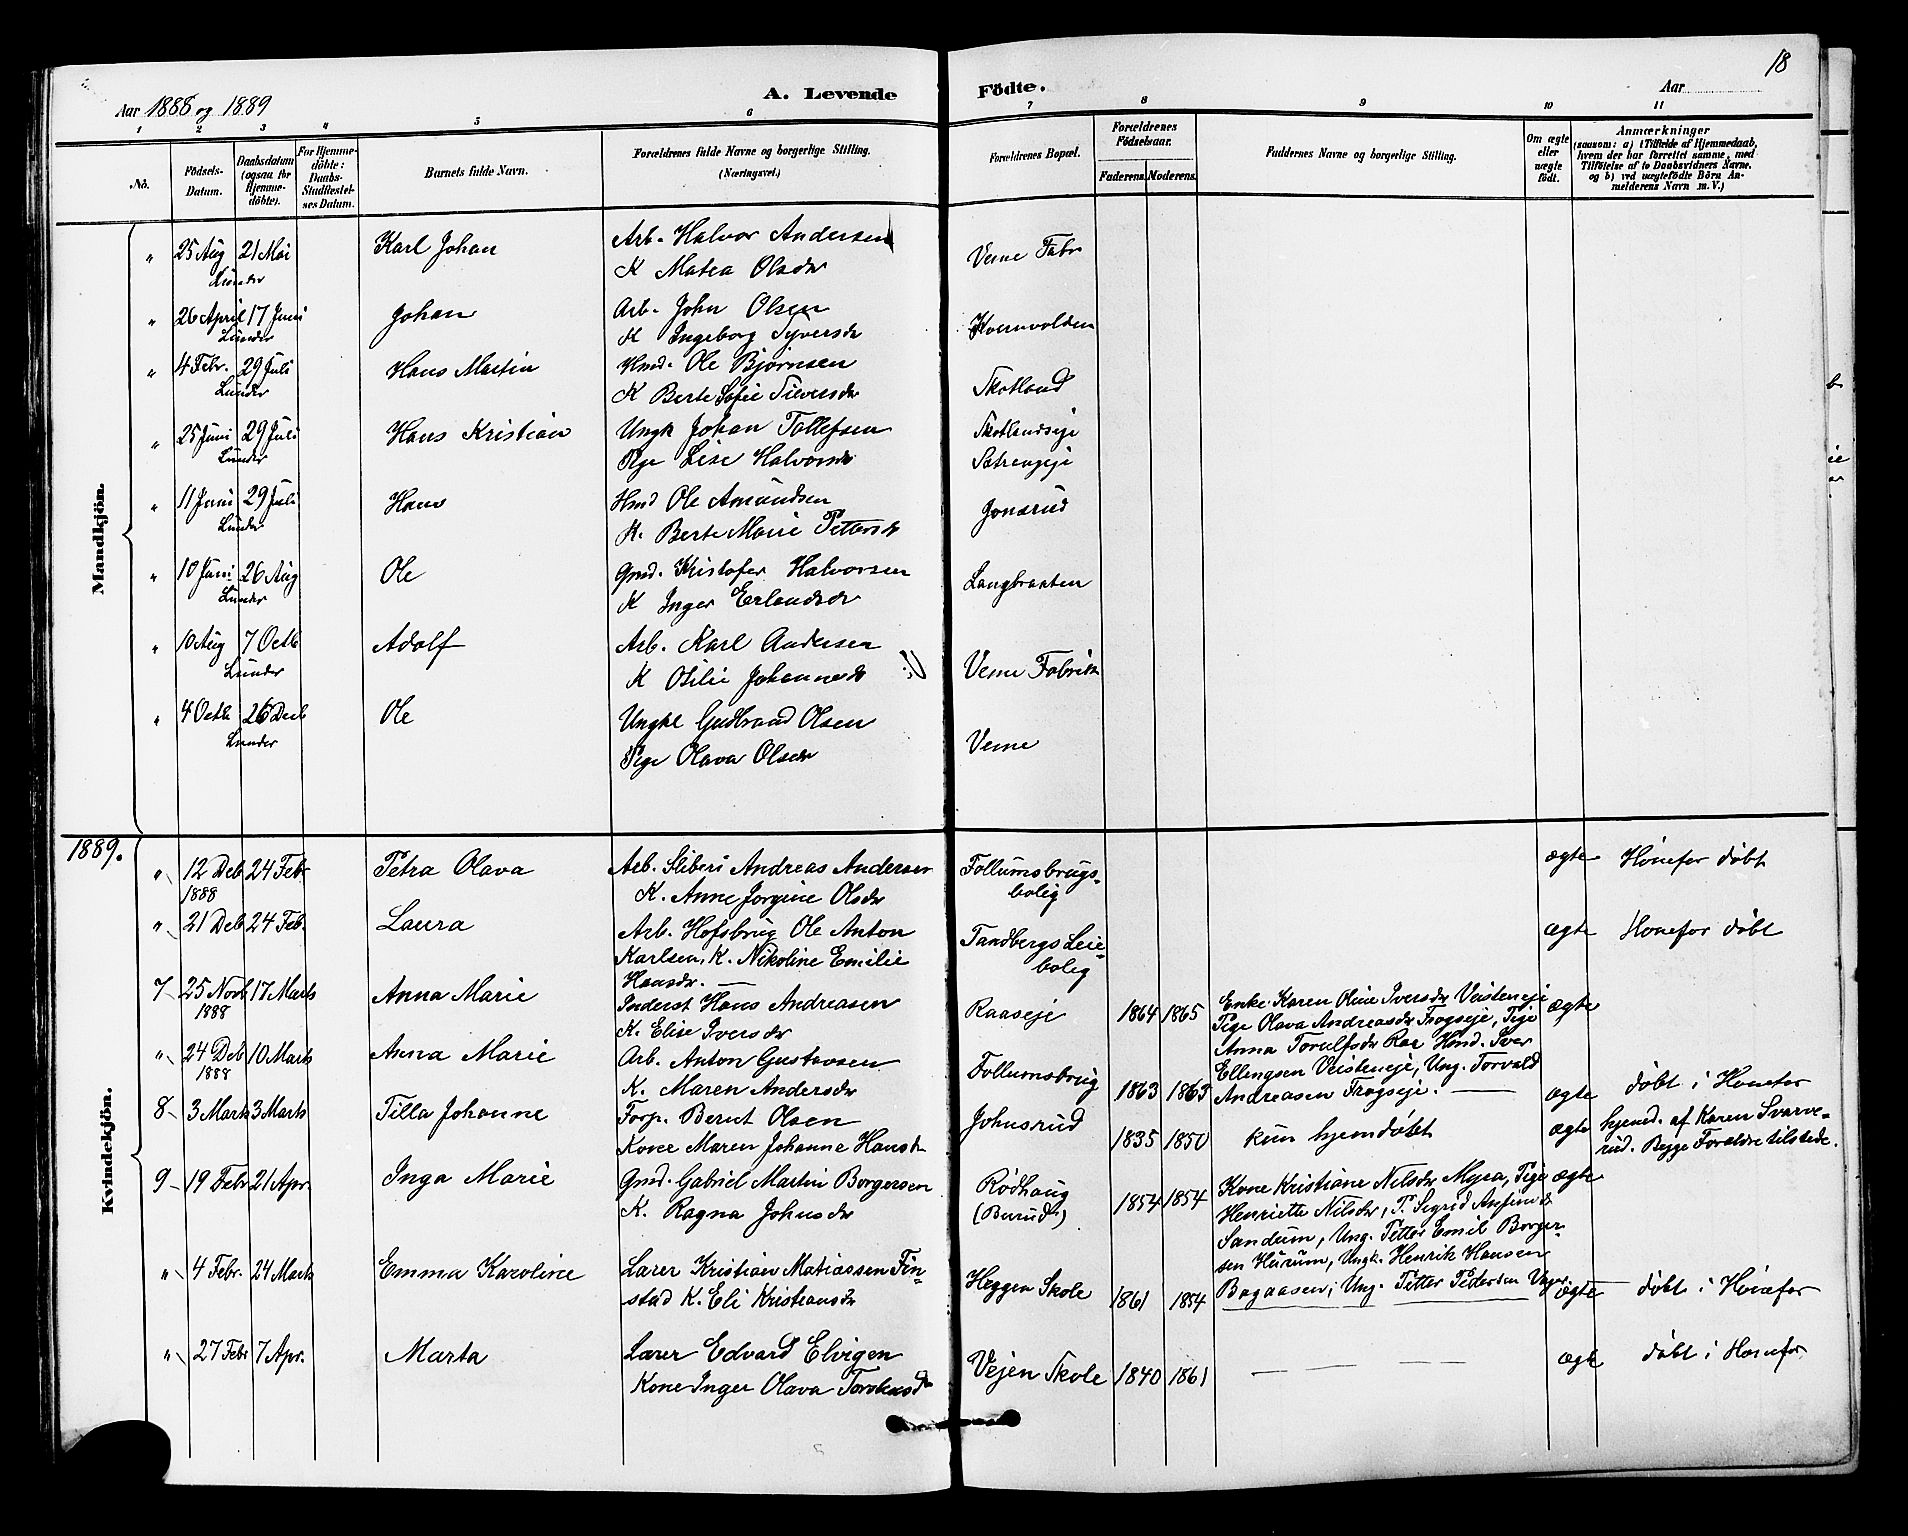 18
Aar 1888 og 1889
A. Levende Födte.
Aar
1 2 3 4 5 6 7 8 9 10 11
No.
Födsels-Datum.
Daabsdatum (ogsaa for Hjemmedöbte).
For Hjemmedöbte: Daabs-Stadfæstelses Datum.
Barnets fulde Navn.
Forældrenes fulde Navne og borgerlige Stilling. (Næringsvei.)
Forældrenes Bopæl.
Forældrenes Födselsaar.
Faderens. Moderens.
Faddernes Navne og borgerlige Stilling.
Om ægte eller uægte födt.
Anmærkninger (saasom: a) i Tilfælde af Hjemmedaab, hvem der har forrettet samme, med Tilföielse af to Daabsvidners Navne, og b) ved uægtefödte Börn Anmelderens Navn m. V.)
Mandkjön.
" 25 Aug 21 Mai Karl Johan Arb. Halvor Andersen Veme Fabr
Lunder K Matea Olsdr
" 26 April 17 Juni Johan Arb. John Olsen Kvernvolden
Lunder K Ingeborg Syversdr
" 4 Febr. 29 Juli Hans Martin Hmd. Ole Bjørnsen Skotland
Lunder K Berte Sofie Siversdr
" 25 Juni 29 Juli Hans Kristian Ungk Johan Tollefsen Skotlandseje
Lunder Pge Lise Halvorsdr Sætrengeje
" 11 Juni 29 Juli Hans Hmd Ole Amundsen Jonsrud
Lunder K. Berte Marie Pettersdr
" 10 Juni 26 Aug Ole Gmd. Kristofer Halvorsen Langbraaten
Lunder K Inger Erlandsdr
" 10 Aug 7 Octb Adolf Arb. Karl Andersen Veme Fabrik
Lunder K Otilie Johannesdr
" 4 Octb 26 Decb Ole Ungkl Gudbrand Olsen Veme
Lunder Pge Olava Olsdr
1889.
Kvindekjön.
" 12 Deb 24 Febr Petra Olava Arb. Sliberi Andreas Andersen Follumsbrugs- ægte Hønefos døbt
1888 K. Anne Jorgine Olsdr bolig
" 21 Deb 24 Feb. Laura Arb. Hofsbrug Ole Anton Tandbergs Leie- ægte Hønefos døbt
Karlsen, K. Nikoline Emilie bolig
Hansdr.
7 25 Novb 17 Marts Anna Marie Inderst Hans Andreasen Raaseje 1864 1865 Enke Karen Oline Iversdr Veisteneje ægte
1888 K. Elise Iversdr Pige Olava Andreasdr Frogseje, Pige
Anna Torulfsdr Rar Hmd. Iver
" 24 Deb 10 Marts Anna Marie Arb. Anton Gustavsen Follumsbrug 1863 1863 Ellingsen Veisteneje, Ung. Torvald ægte døbt i Hønefos
1888 K. Maren Andersdr Andreasen Frogseje.
8 3 Marts 3 Marts Tilla Johanne Forp. Bernt Olsen Johnsrud 1835 1850 kun hjemdøbt ægte hjemd. af Karen Svarve-
Kone Maren Johanne Hansdr rud. Begge Forældre tilstede.
9 19 Febr 21 Apr. Inga Marie Gmd. Gabriel Martin Borgersen Rødhaug 1854 1854 Kone Kristiane Nilsdr Myra, Pige ægte
K. Ragna Johnsdr (Burud) Henriette Nilsdr, P. Sigrid Anfinsdr
Sandum, Ung. Petter Emil Borger-
sen Hurum, Ungk. Henrik Hansen
" 4 Febr. 24 Marts Emma Karoline Lærer Kristian Matiassen Fin- Heggen Skole 1861 1854 Bagaasen, Ung. Petter Pedersen ægte døbt i Hønefos
stad K. Eli Kristiansdr
" 27 Febr 7 Apr. Marta Lærer Edvard Elvigen Vejen Skole 1840 1861 ægte døbt i Hønefos
Kone Inger Olava